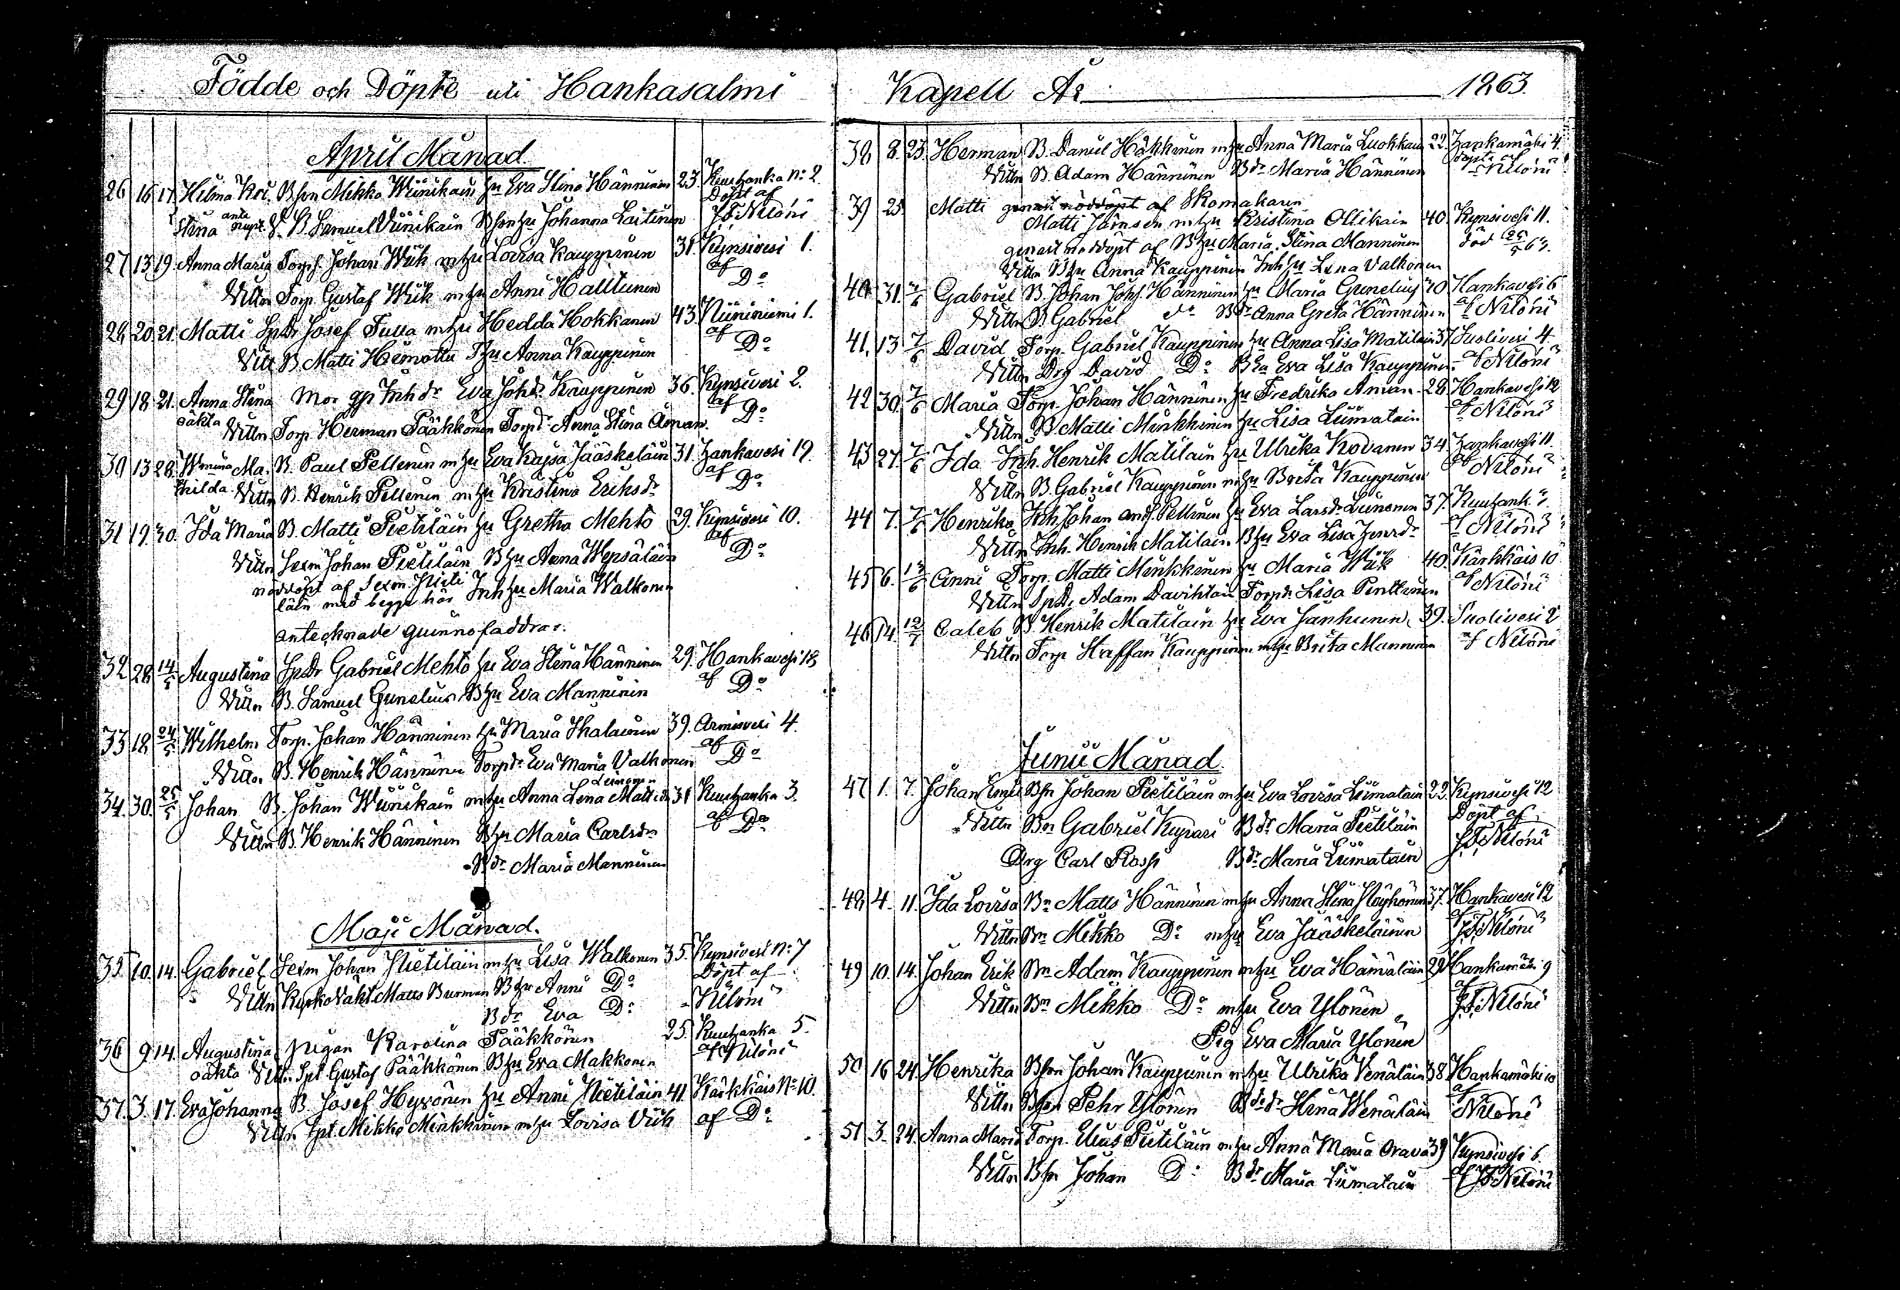 Födde och Döpte uti Hankasalmi Kapell År 1863.
April Månad.
26 16 17 Hilma Kri. Bson Mikko Wiinikain hu Eva Stina Hänninen 23. Kuuhanka No 2.
Döpt af
Stina B. Samuel Viinikain Bson hu Johanna Laitinen J. F. Nilóni
27 13 19. Anna Maria Torp. Johan Wiik m hu Lovisa Kauppinen 31. Kynsivesi 1.
af
Vittn Torp. Gustaf Wiik m hu Anni Halttunen Do
28 20 21. Matti Josef m hu Hedda Hokkanen 43. Niininiemi 1.
af
Vittn B. Matti hu Anna Kauppinen Do
29 18 21. Anna Stina Mor Inh dr Eva Joh dr Kauppinen 36. Kynsivesi 2.
oäkta af
Vittn Torp. Herman Pääkkönen Torp dr Anna Stina Do
30 13 28. Ma. B. Paul Pellenen m hu Eva Kajsa Jääskeläin 31. Hankavesi 19.
Hilda af
Vittn B. Henrik Pellenen m hu Kristina Eriksdr Do
31 19 30. Ida Maria B. Matti Pietiläin hu Gretha Mehto 29. Kynsivesi 10.
af
Vittn Sexm Johan Pietiläin B hu Anna Wepsäläin Do
nöddöpt af Sexm Pieti Inh hu Maria Walkonen
läin med begge här
antecknade qvinnofaddrar.
32 28 14/5 Augustina Gabriel Mehto hu Eva Stina Hänninen 29. Hankavesi 18
af
Vittn B. Samuel Gunelius B hu Eva Manninen Do
33 18 24/5 Wilhelm Torp. Johan Hänninen hu Maria Ihalainen 39. Armisvesi 4.
af
Vittn B. Henrik Hänninen Torp dr Eva Maria Valkonen Do
34. 30. 25/5 Johan B. Johan Wiinikain m hu Anna Lena 31 Kuuhanka 3.
af
Vittn B. Henrik Hänninen B hu Maria Carlsdr Do
B dr Maria Manninen
Maji Månad.
35 10. 14. Gabriel Sexm Johan Pietiläin m hu Lisa Walkonen 35. Kynsivesi No 7
Döpt af
Vittn Matts Burman B hu Anni Do Nilóni
B dr Eva Do
36 9 14. Augustina pigan Karolina Pääkkönen 25. Kuuhanka 5.
oäkta Vittn Gustaf Pääkkönen B hu Eva Makkonen af Nilóni
37. 3. 17. Eva Johanna B. Josef Hyvönen hu Anni Pietiläin 41. Kärkkäis No 10.
Vittn Mikko Minkkinen m hu Lovisa Viik af Do
38 8. 23. Herman B. Daniel Häkkinen m hu Anna Maria Luokkain 22. Hankamäki 4.
Vittn B. Adam Hänninen B dr Maria Hänninen Nilóni
39 25. Matti Skomakaren
Matti Jönsson m hu Kristina Ollikain 40. Kynsivesi 11.
genast nöddöpt af B hu Maria Stina Manninen död 25/5 63.
Vittn B hu Anna Kauppinen Inh hu Lena Valkonen
40 31. 7/6 Gabriel B. Johan Hänninen hu Maria Gunelius 40. Hankavesi 6
Vittn B. Gabriel do B dr Anna Greta Hänninen af Nilóni
41. 13 7/6 David Torp. Gabriel Kauppinen hu Anna Lisa Matilain 37 Suolivesi 4.
Vittn Drg David Do Eva Lisa Kauppinen af Nilóni
42 30. 7/6 Maria Torp. Johan Hänninen hu Fredrika Aman 28. Hankavesi 12
Vittn B. Matti Minkkinen hu Lisa Liimatain af Nilóni
43 27. 7/6 Ida Inh. Henrik Matilain hu Ulrika Kovanen 34. Hankavesi 11.
Vittn B. Gabriel Kauppinen m hu Brita Kauppinen af Nilóni
44 7. 7/6 Henrika Inh Johan Pellinen hu Eva Larsdr Liinanen 37.
Vittn Inh. Henrik Matilain B hu Eva Lisa af Nilóni
45 6. 13/6 Anni Torp. Matti Minkkinen hu Maria Wiik 40. Kärkkäis 10
Vittn Adam Davihlain Torp dr Lisa Penttinen af Nilóni
46 14. 12/7 Caleb B. Henrik Matilain hu Eva Janhunen 39. Suolivesi 2
Vittn Torp Staffan Kauppinen m hu Brita Manninen af Nilóni
Junii Månad.
47 1. 7. Johan Emil Bsn Johan Pietiläin m hu Eva Lovisa Liimatain 22. Kynsivesi 12
Vittn Bn Gabriel Kuparí B dr Maria Pietiläin Döpt af
Drg Carl Rossi B dr Maria Liimatain J. F. Nilóni
48 4. 11. Ida Lovisa Bn Matts Hänninen m hu Anna Stina Möyhönen 37. Hankavesi 12
Vittn Bn Mikko Do m hu Eva Jääskeläinen J. F. Nilóni
49 10. 14. Johan Erik Bn Adam Kauppinen m hu Eva Hämäläin 29 Hankamäki 9
Vittn Bn Mikko Do m hu Eva Ylönen J. F. Nilóni
Pig Eva Maria Ylönen
50 16 24. Henrika Bsn Johan Kauppinen m hu Ulrika Venäläin 38. Hankamäki 10
af
Vittn Bsn Pehr Ylönen Stina Wenäläin Nilóni
51 3. 24. Anna Maria Torp. Elias Pietiläin m hu Anna Maria Orava 39 Kynsivesi 6.
Vittn Bsn Johan Do B dr Maria Liimatain af J. F. Nilóni